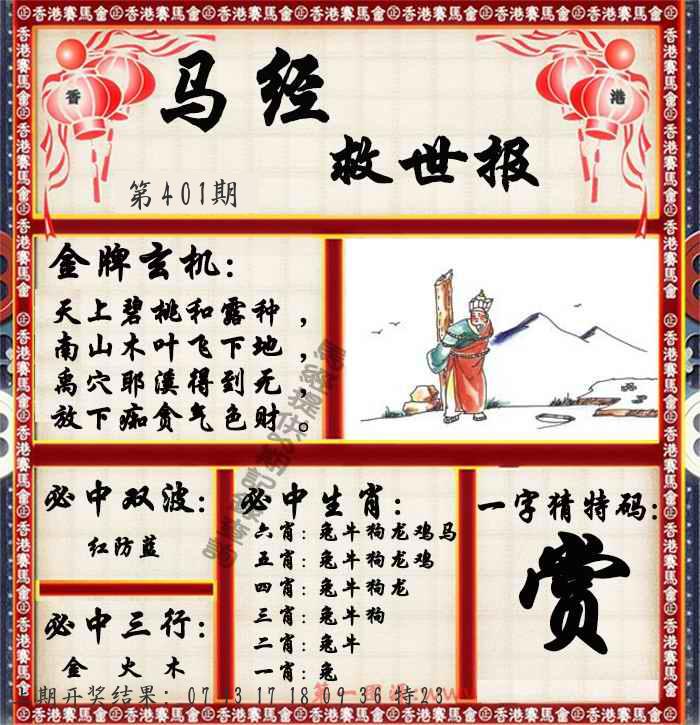 香港賽馬會
香 港
马经
救世报
第401期
金牌玄机：
天上碧桃和露种，
南山木叶飞下地，
禹穴耶溪得到无，
放下痴贪气色财。
必中双波：
红防蓝
必中三行：
金 火 木
必中生肖：
六肖：兔牛狗龙鸡马
五肖：兔牛狗龙鸡
四肖：兔牛狗龙
三肖：兔牛狗
二肖：兔牛
一肖：兔
一字猜特码：
赏
期开奖结果：07 13 17 18 09 36 特23